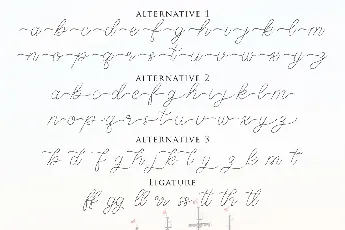 ALTERNATIVE 1
a b c d e f g h i j k l m
n o p q r s t u v w x y z
ALTERNATIVE 2
a b c d e f g h i j k l m
n o p q r s t u v w x y z
ALTERNATIVE 3
b d f g h j k l y z h l m t
LIGATURE
ff gg ll rr ss tt th tl